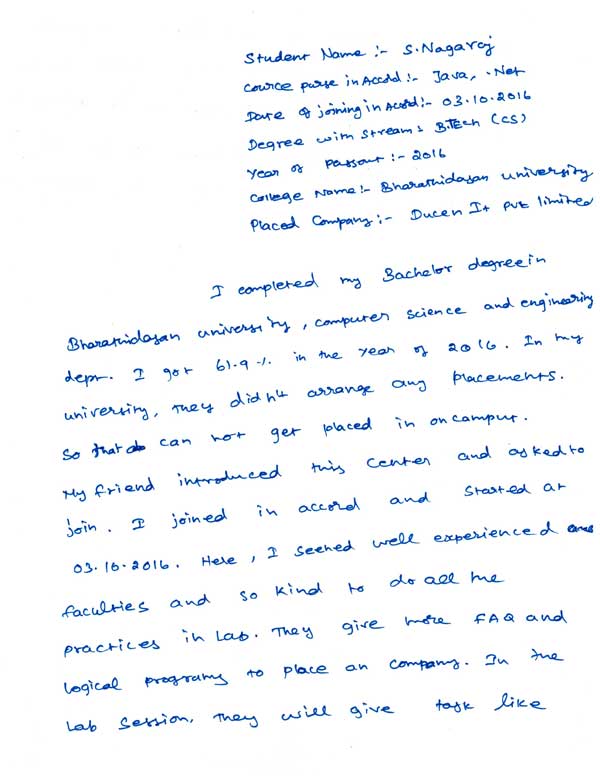 Student Name :- S.Nagaraj
Cource purse in Accord :- Java, .Net
Date of joining in Accord :- 03.10.2016
Degree with Stream : B.Tech (CS)
Year of Passout :- 2016
College Name :- Bharathidasan university
Placed Company :- Ducen It Pvt limited
I completed my Bachelor degree in
Bharathidasan university, computer science and engineering
dept. I got 61.9 % in the year of 2016. In my
university, they didn't arrange any placements.
So that can not get placed in oncampus.
My friend introduced this center and asked to
join. I joined in accord and started at
03.10.2016. Here, I seened well experienced
faculties and so kind to do all the
practices in Lab. They give more FAQ and
logical programs to place an company. In the
Lab session, they will give task like